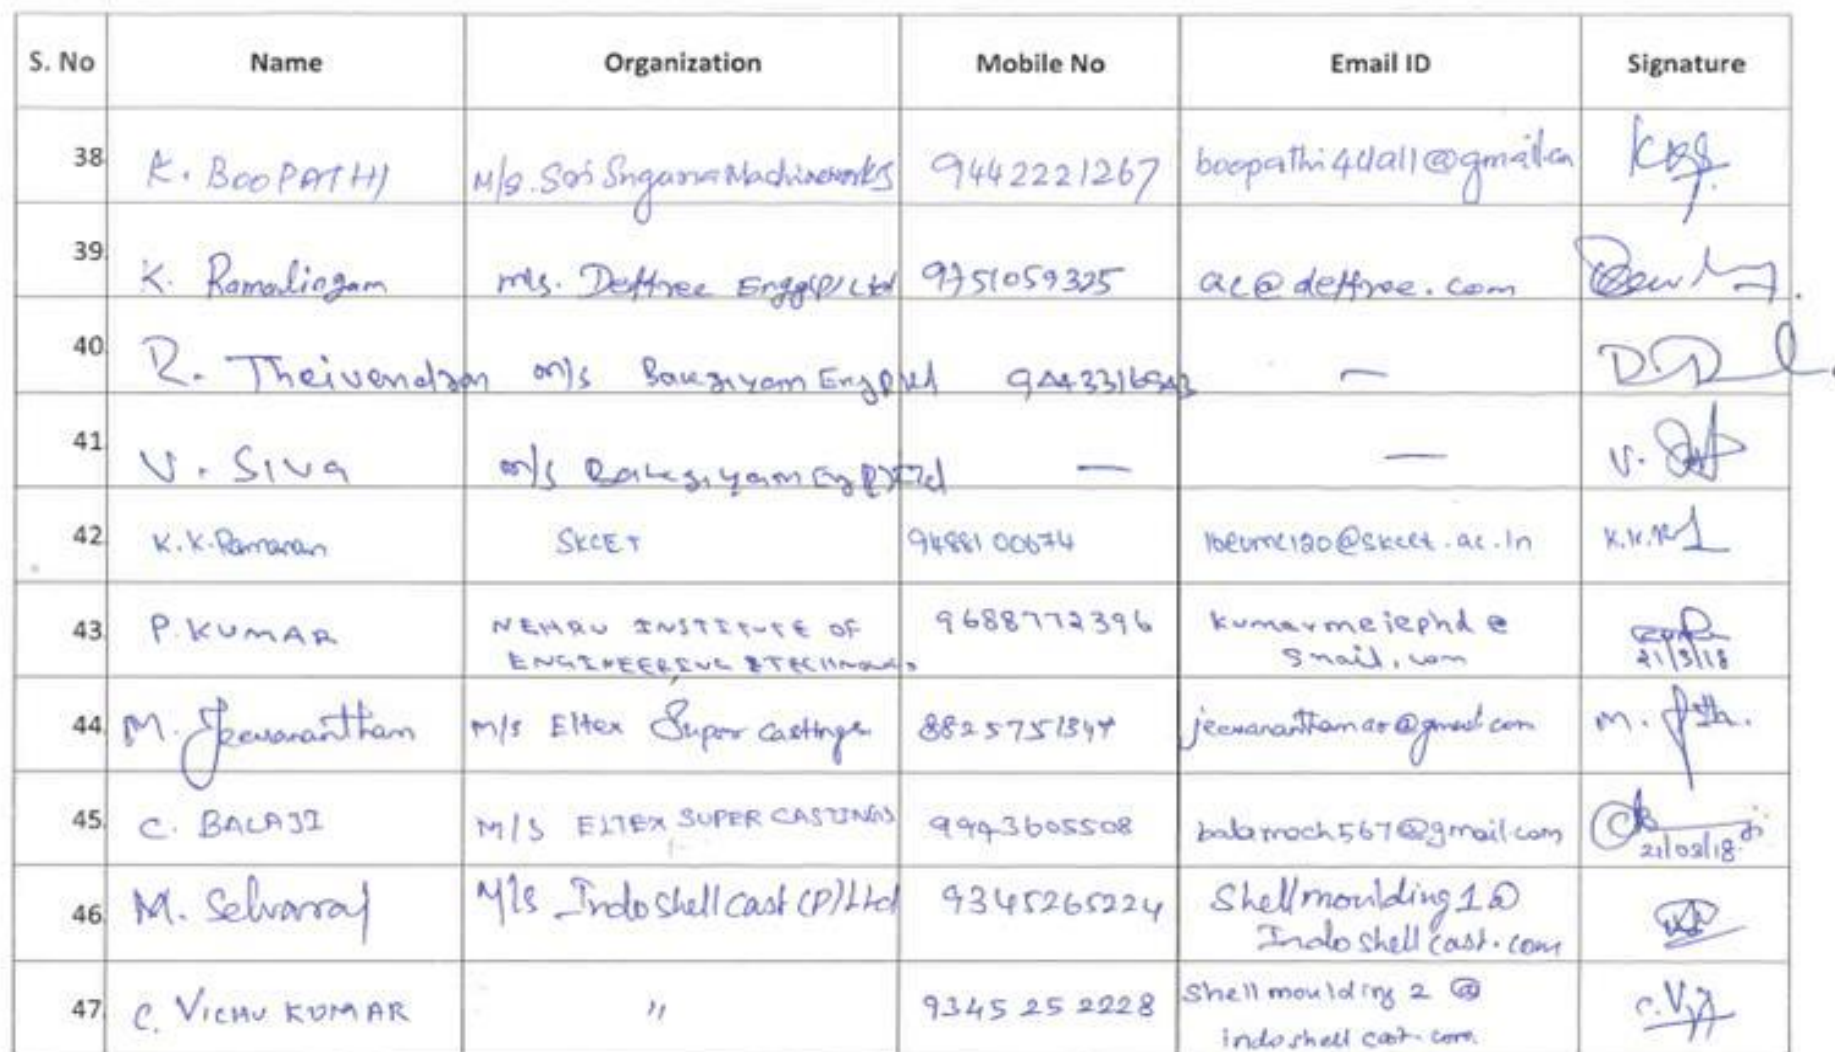 S. No Name Organization Mobile No Email ID Signature
38. K. BOOPATHI M/s. Sri Singarra Machineworks 9442221267 @gmail.com
39. K. Ramalingam m/s. Deffree Engg(P) Ltd 9751059325 ac@deffree.com
40. R. Theivendran m/s Bakgiyam Eng P Ltd —
41. V. SIVA m/s Bakgiyam Eng (P) Ltd — — V.
42. K.K. Ramanan SKCET 9488100674 16eume120@skcet.ac.in K.K.R
43. P. KUMAR NEHRU INSTITUTE OF 9688772396 kumarmeiephd@
ENGINEERING & TECHNOLOGY gmail.com 21/3/18
44. M. Jeevanantham M/s Eltex Super Castings 8825751347 M.
45. C. BALAJI M/S ELTEX SUPER CASTINGS 9943605508 balamech567@gmail.com 21/03/18
46. M. Selvaraj M/s Indo shell cast (P) Ltd 9345265224 Shellmoulding1@
Indoshellcast.com
47. C. VICHU KUMAR " 9345 25 2228 Shellmoulding 2 @
indoshellcast.com